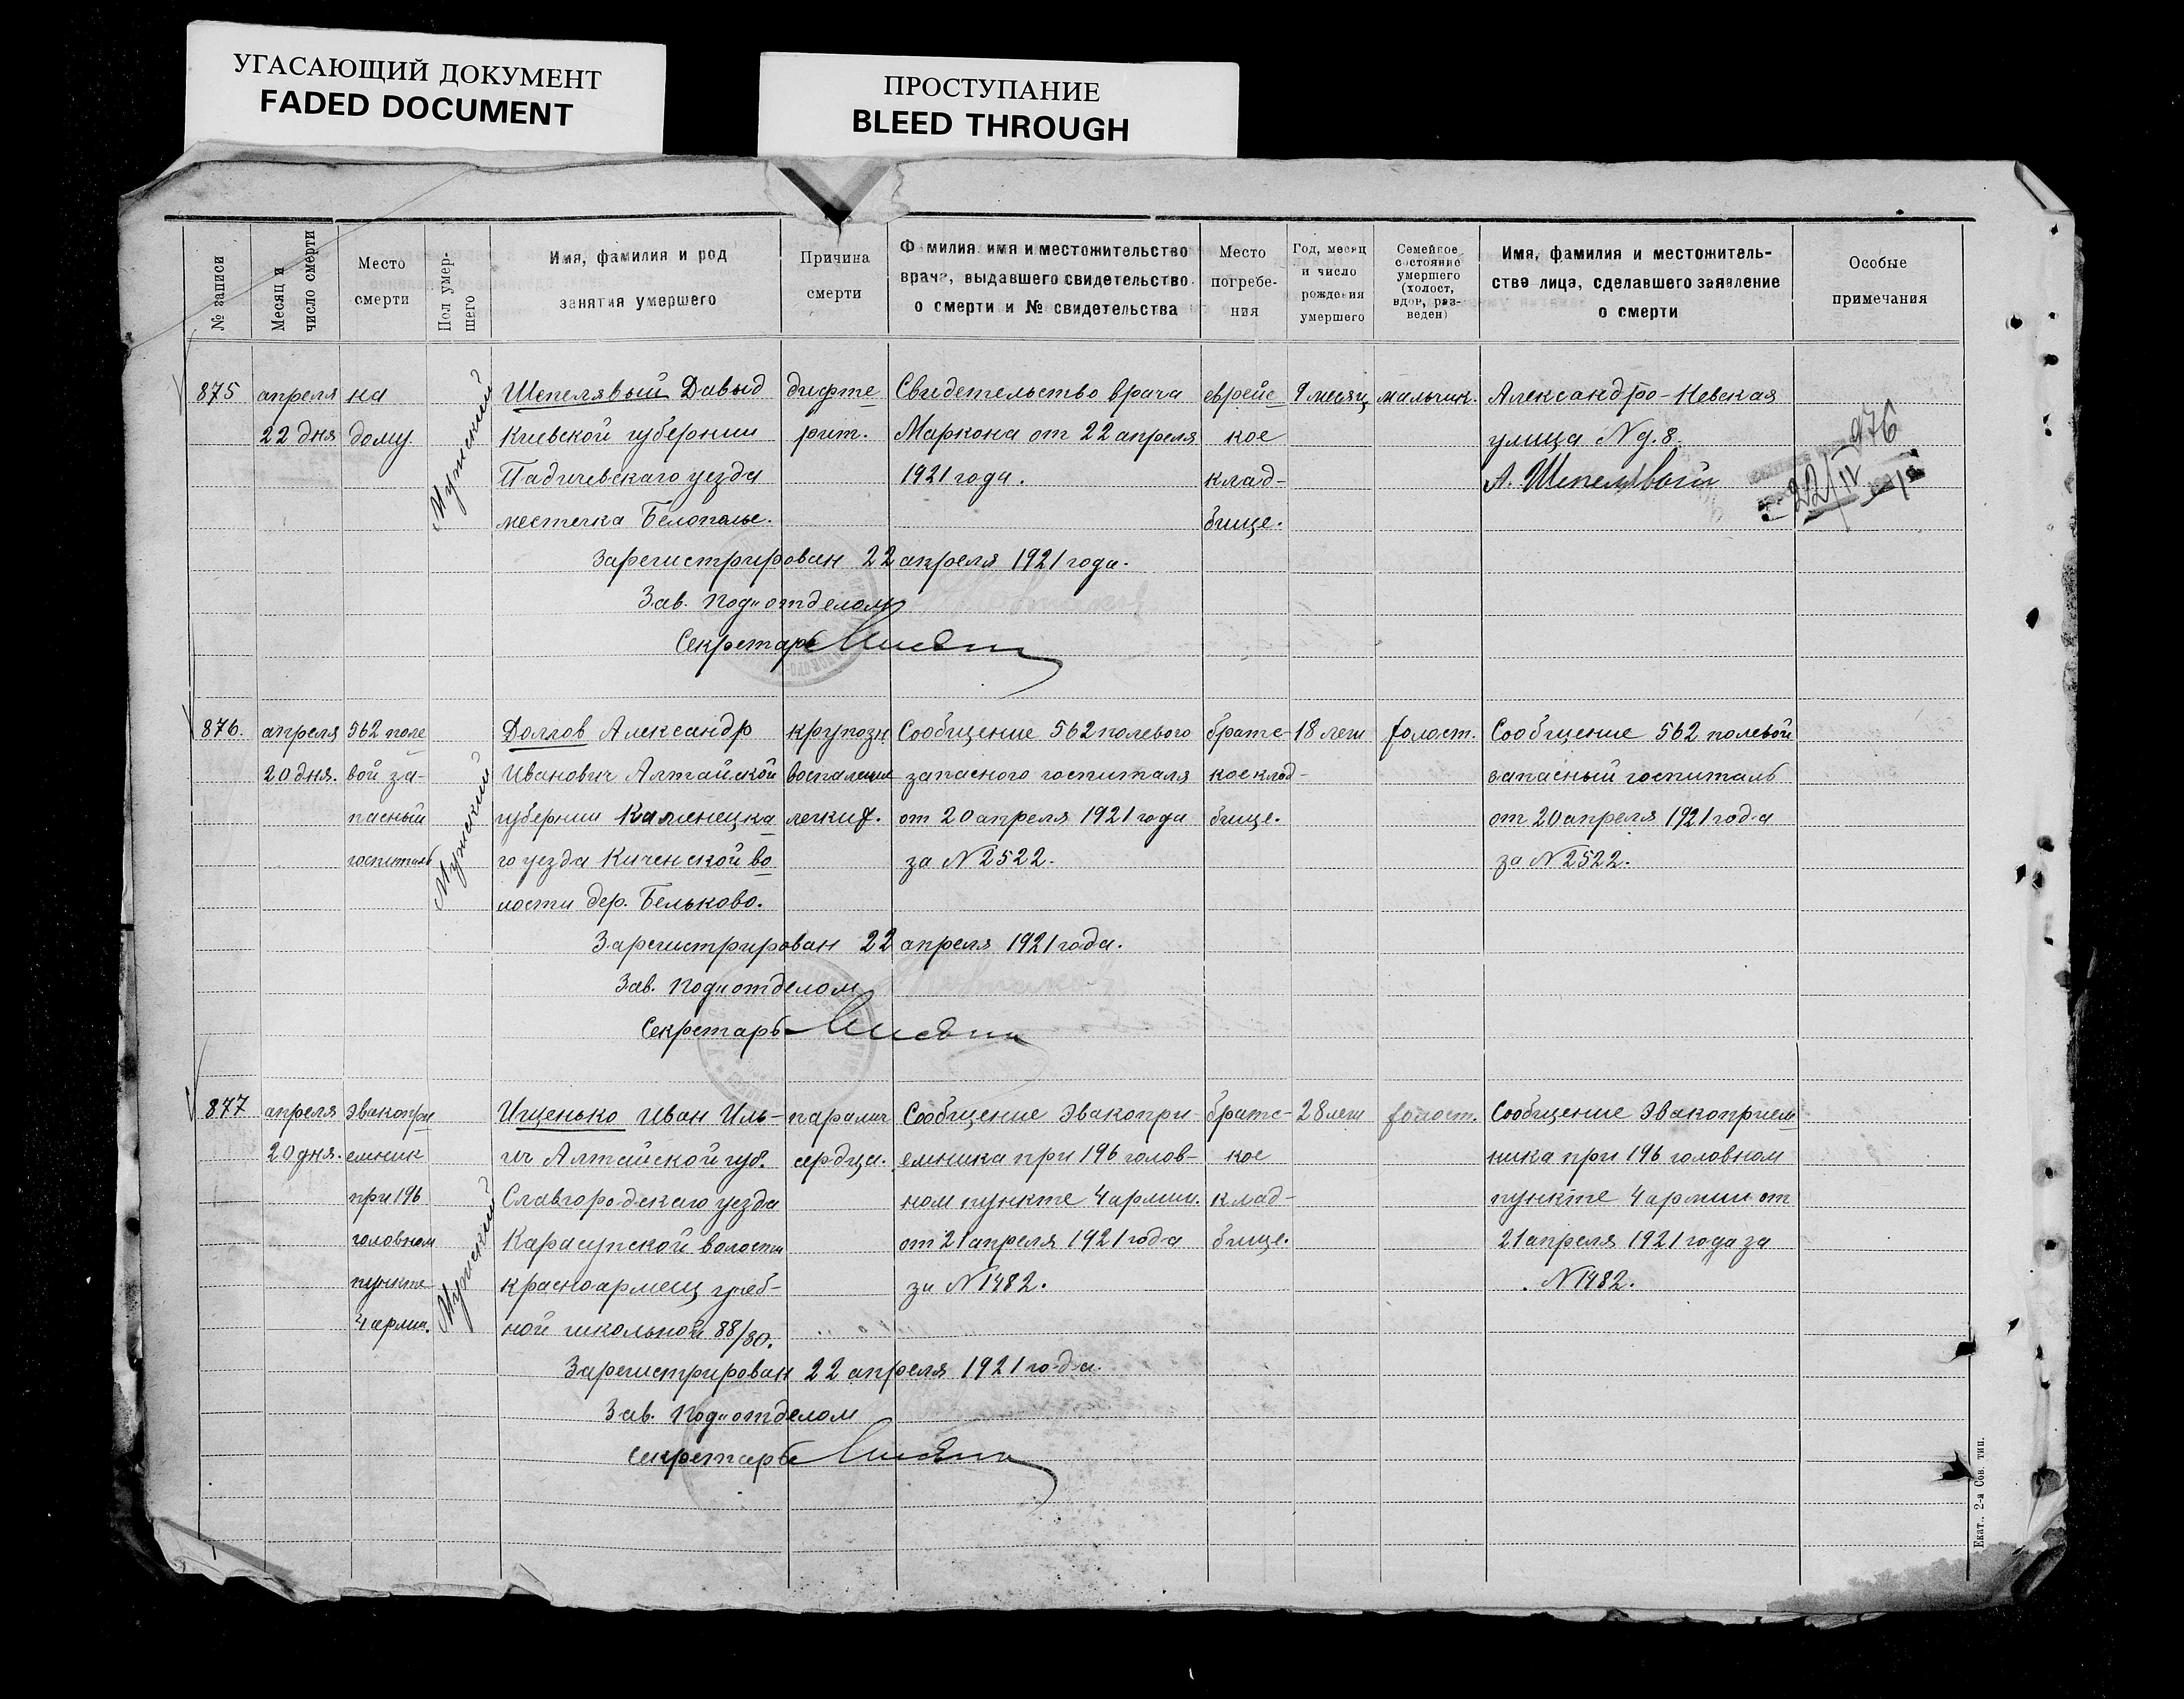 УГАСАЮЩИЙ ДОКУМЕНТ
FADED DOCUMENT
ПРОСТУПАНИЕ
BLEED THROUGH
№ записи
Месяц и
число смерти
Место
смерти
Пол умер-
шего
Имя, фамилия и род
занятия умершего
Причина
смерти
Фамилия имя и местожительство
врача, выдавшего свидетельство
о смерти и № свидетельства
Место
погребе-
ния
Год, месяц
и число
рождения
умершего
Семейное
состояние
умершего
(холост,
вдов, раз-
веден)
Имя, фамилия и местожитель-
ство лица, сделавшего заявление
о смерти
Особые
примечания
875
апреля
22 дня
на
дому
Мужский
Шепелявый Давыд
Киевской губернии
Падичевскаго уезда
местечка Белополье.
дифте
рит.
Свидетельство врача
Маркона от 22 апреля
1921 года.
еврейс
кое
клад-
бище.
9 месяц
мальчик.
Александро-Невская
улица N д. 8.
А. Шепелявый
976
22/IV
Зарегистрирован 22 апреля 1921 года.
Зав. Под"отделом
Секретарь
876.
апреля
20 дня.
562 поле
вой за-
пасный
госпиталь
Мужский
Долгов Александр
Иванович Алтайской
губернии Каменецка
го уезда Киченской во
лости дер. Бельково.
крупозн
воспаление
легких.
Сообщение 562 полевого
запасного госпиталя
от 20 апреля 1921 года
за N 2522.
братс-
кое клад-
бище.
18 лет
холост.
Сообщение 562 полевой
запасный госпиталь
от 20 апреля 1921 года
за N 2522.
Зарегистрирован 22 апреля 1921 года.
Зав. Под"отделом
Секретарь
877
апреля
20 дня.
Эвакопри
емник
при 196
головном
пункте
4 армии.
Мужский
Ищенько Иван Иль-
ич Алтайской губ.
Славгородскаго уезда
Карасупской волости
красноармеец учеб-
ной школьной 88/80.
паралич
сердца.
Сообщение Эвакопри-
емника при 196 голов-
ном пункте 4 армии.
от 21 апреля 1921 года
за N 1482.
братс-
кое
клад-
бище.
28 лет
холост.
Сообщение Эвакоприем
ника при 196 головном
пункте 4 армии от
21 апреля 1921 года за
N 1482.
Зарегистрирован 22 апреля 1921 года.
Зав. Под"отделом
Секретарь
Екат., 2-я Сов. тип.